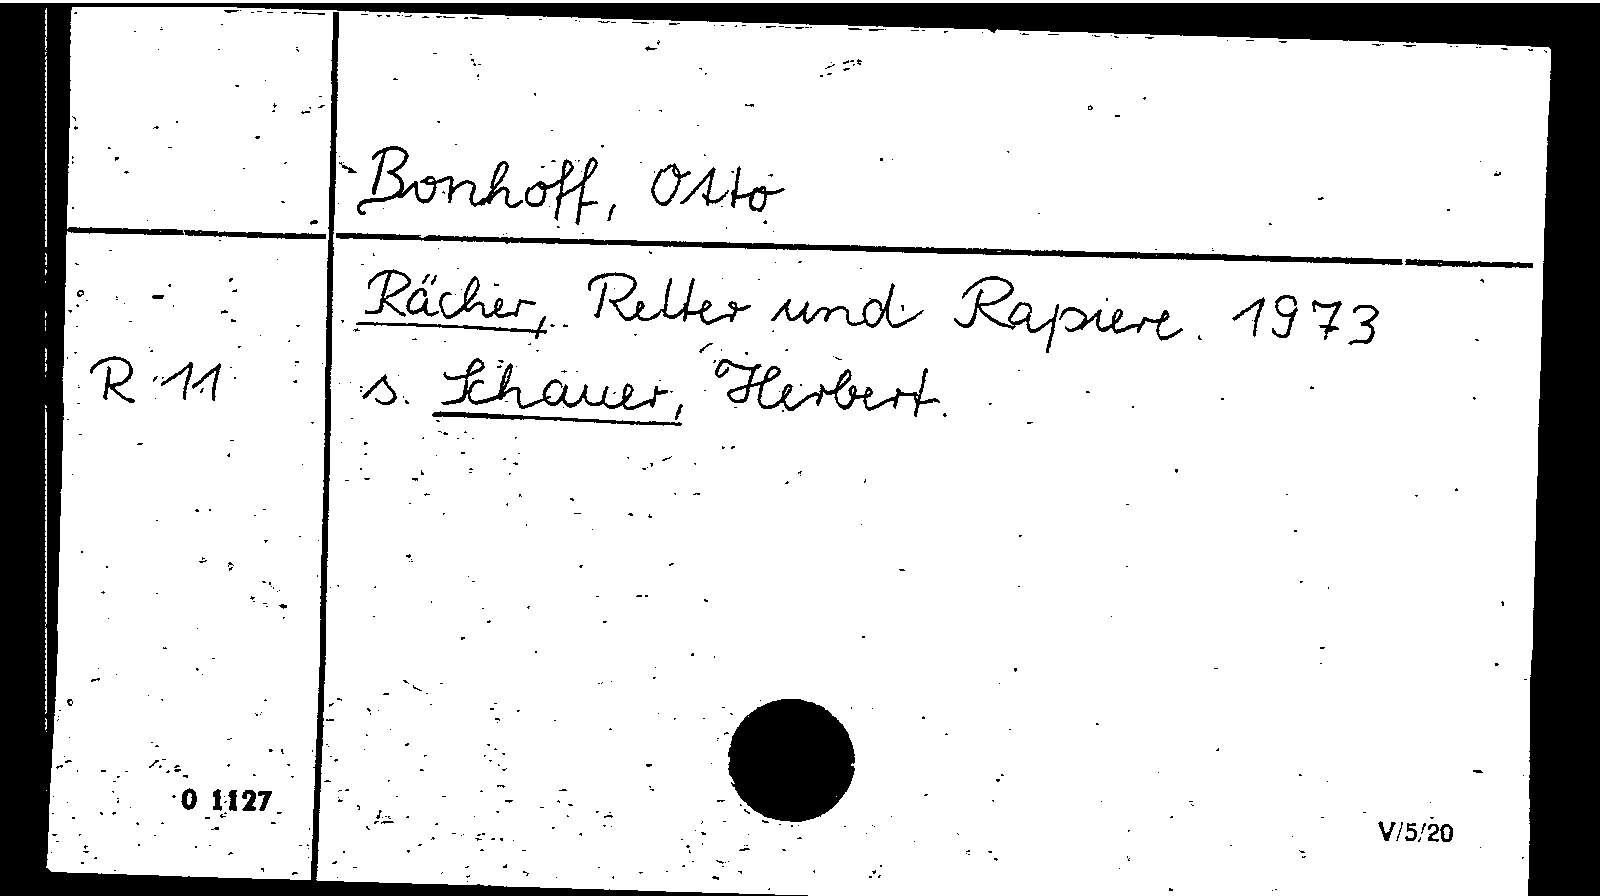 Bonhoff, Otto
Rächer, Retter und Rapiere. 1973
R 11
s. Schauer, Herbert.
O 1127
V/5/20